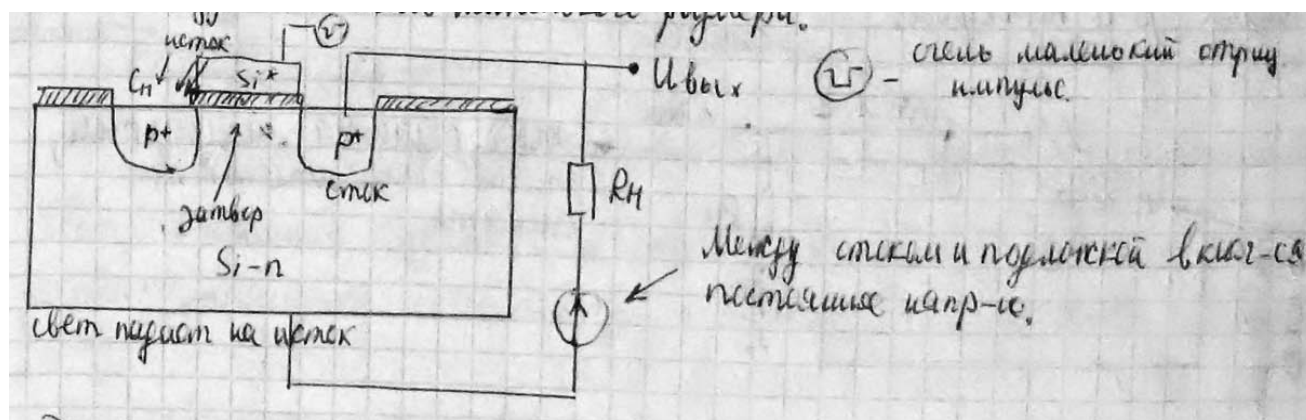 размеры.
исток
Cп
Si*
Uвых
очень маленький отриц
импульс.
p+
p+
сток
затвор
Si-n
Rн
Между стоком и подложкой включ-ся
постоянное напр-ие.
свет падает на исток